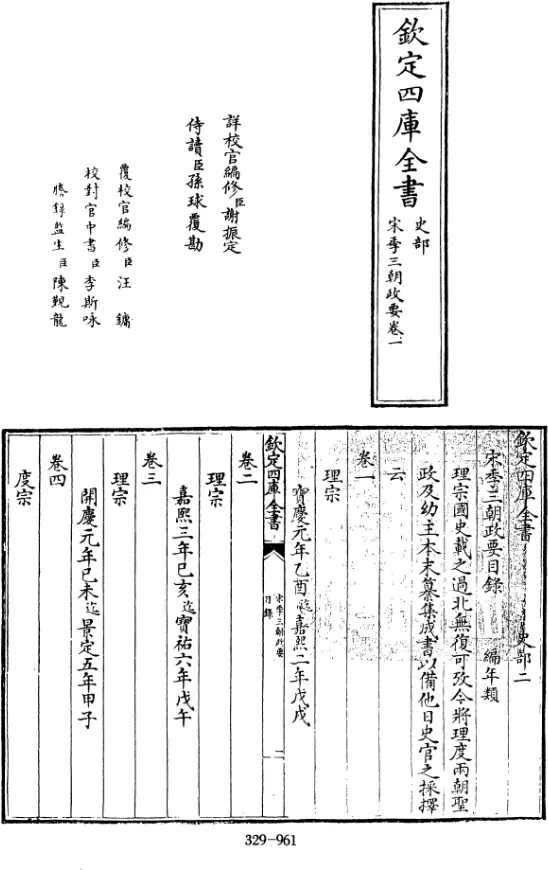 欽定四庫全書
史部
宋季三朝政要卷一
詳校官編修臣謝振定
侍讀臣孫球覆勘
覆校官編修臣汪鏞
校對官中書臣李斯咏
謄録監生臣陳觀龍
欽定四庫全書 史部二
宋季三朝政要目錄 編年類
理宗國史載之過北無復可攷今將理度兩朝聖
政及幼主本末纂集成書以備他日史官之採擇
云
卷一
理宗
寳慶元年乙酉迄嘉熙二年戊戌
欽定四庫全書
宋季三朝政要
目錄
二
卷二
理宗
嘉熙三年己亥迄寳祐六年戊午
卷三
理宗
開慶元年己未迄景定五年甲子
卷四
度宗
329-961